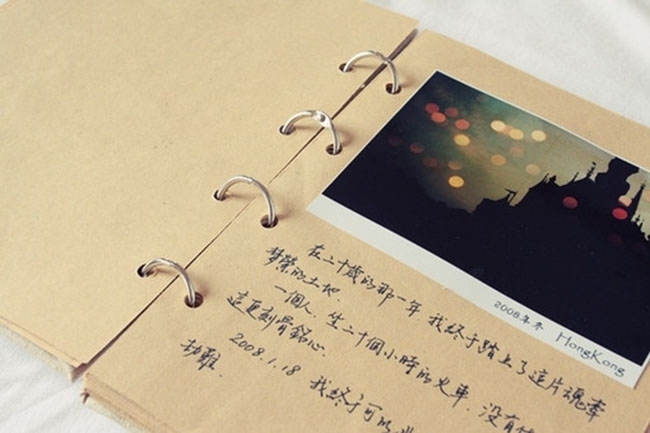 2008年冬 HongKong
在二十歲的那一年,我終于踏上了這片魂牽
梦縈的土地.
一個人.坐二十個小時的火車.没有
這更刻骨銘心.
2008.1.18
我终于可以